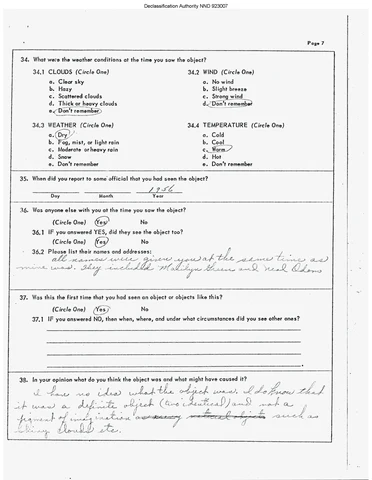 Declassification Authority NND 923007
Page 7
34. What were the weather conditions at the time you saw the object?
34.1 CLOUDS (Circle One) 34.2 WIND (Circle One)
a. Clear sky a. No wind
b. Hazy b. Slight breeze
c. Scattered clouds c. Strong wind
d. Thick or heavy clouds d. Don't remember
e. Don't remember
34.3 WEATHER (Circle One) 34.4 TEMPERATURE (Circle One)
a. Dry a. Cold
b. Fog, mist, or light rain b. Cool
c. Moderate or heavy rain c. Warm
d. Snow d. Hot
e. Don't remember e. Don't remember
35. When did you report to some official that you had seen the object?
1956
Day Month Year
36. Was anyone else with you at the time you saw the object?
(Circle One) Yes No
36.1 IF you answered YES, did they see the object too?
(Circle One) Yes No
36.2 Please list their names and addresses:
all names were given you at the same time as
mine was. They included Marilyn and Neal
37. Was this the first time that you had seen an object or objects like this?
(Circle One) Yes No
37.1 IF you answered NO, then when, where, and under what circumstances did you see other ones?
38. In your opinion what do you think the object was and what might have caused it?
I have no idea what the object was. I do know that
it was a definite object (two identical) and not a
figment of imagination natural objects such as
clouds etc.